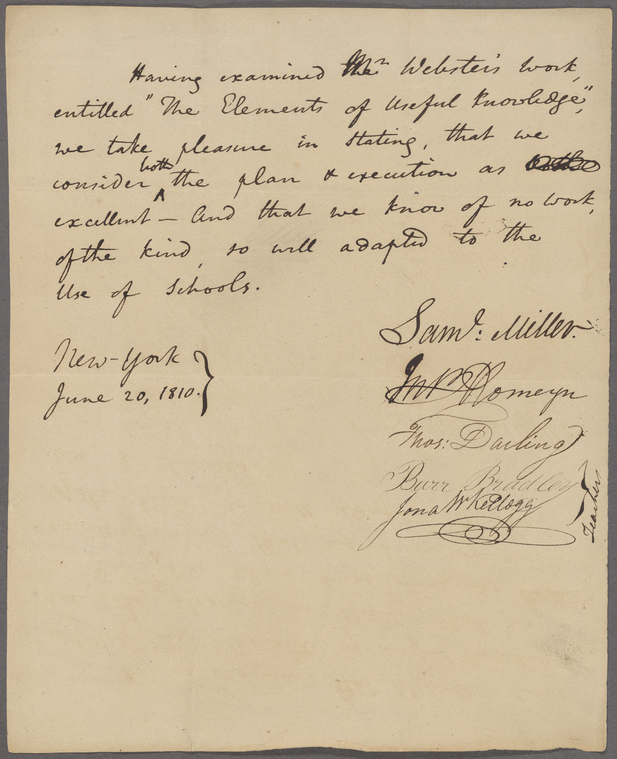 Having examined Mr Webster's work,
entitled "The Elements of Useful Knowledge",
we take pleasure in stating, that we
consider both the plan & execution as
excellent – And that we know of no work,
of the kind, so well adapted to the
Use of Schools.
New-York
June 20, 1810.
Saml. Miller.
Jno. B. Romeyn
Thos: Darling
Burr Bradley
Jona W Kellogg
Teachers